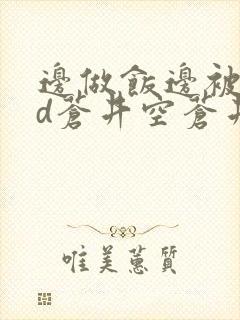 邊做飯邊被
d蒼井空蒼井
唯美蕙質